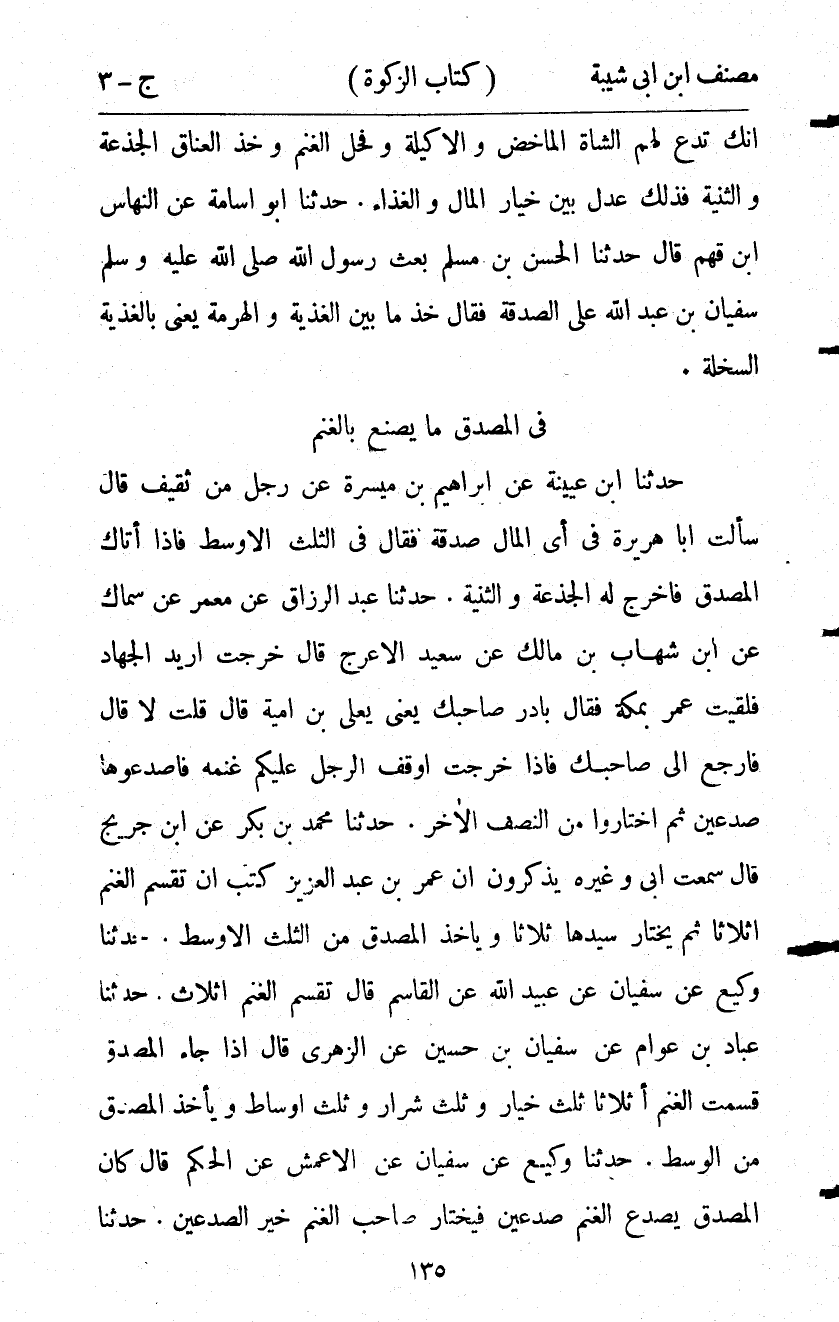 مصنف ابن ابى شيبة (كتاب الزكوة) ج - ٣
انك تدع لهم الشاة الماخض و الاكيلة و فحل الغنم و خذ العناق الجذعة
و الثنية فذلك عدل بين خيار المال و الغذاء . حدثنا ابو اسامة عن النهاس
ابن قهم قال حدثنا الحسن بن مسلم بعث رسول الله صلى الله عليه و سلم
سفيان بن عبد الله على الصدقة فقال خذ ما بين الغذية و الهرمة يعنى بالغذية
السخلة .
فى المصدق ما يصنع بالغنم
حدثنا ابن عيينة عن ابراهيم بن ميسرة عن رجل من ثقيف قال
سألت ابا هريرة فى أى المال صدقة فقال فى الثلث الاوسط فاذا أتاك
المصدق فاخرج له الجذعة و الثنية . حدثنا عبد الرزاق عن معمر عن سماك
عن ابن شهاب بن مالك عن سعيد الاعرج قال خرجت اريد الجهاد
فلقيت عمر بمكة فقال بادر صاحبك يعنى يعلى بن امية قال قلت لا قال
فارجع الى صاحبك فاذا خرجت اوقف الرجل عليكم غنمه فاصدعوها
صدعين ثم اختاروا من النصف الأخر . حدثنا محمد بن بكر عن ابن جريج
قال سمعت ابى و غيره يذكرون ان عمر بن عبد العزيز كتب ان تقسم الغنم
اثلاثا ثم يختار سيدها ثلاثا و ياخذ المصدق من الثلث الاوسط . حدثنا
وكيع عن سفيان عن عبيد الله عن القاسم قال تقسم الغنم اثلاث . حدثنا
عباد بن عوام عن سفيان بن حسين عن الزهرى قال اذا جاء المصدق
قسمت الغنم أثلاثا ثلث خيار و ثلث شرار و ثلث اوساط و يأخذ المصدق
من الوسط . حدثنا وكيع عن سفيان عن الاعمش عن الحكم قال كان
المصدق يصدع الغنم صدعين فيختار صاحب الغنم خير الصدعين . حدثنا
١٣٥